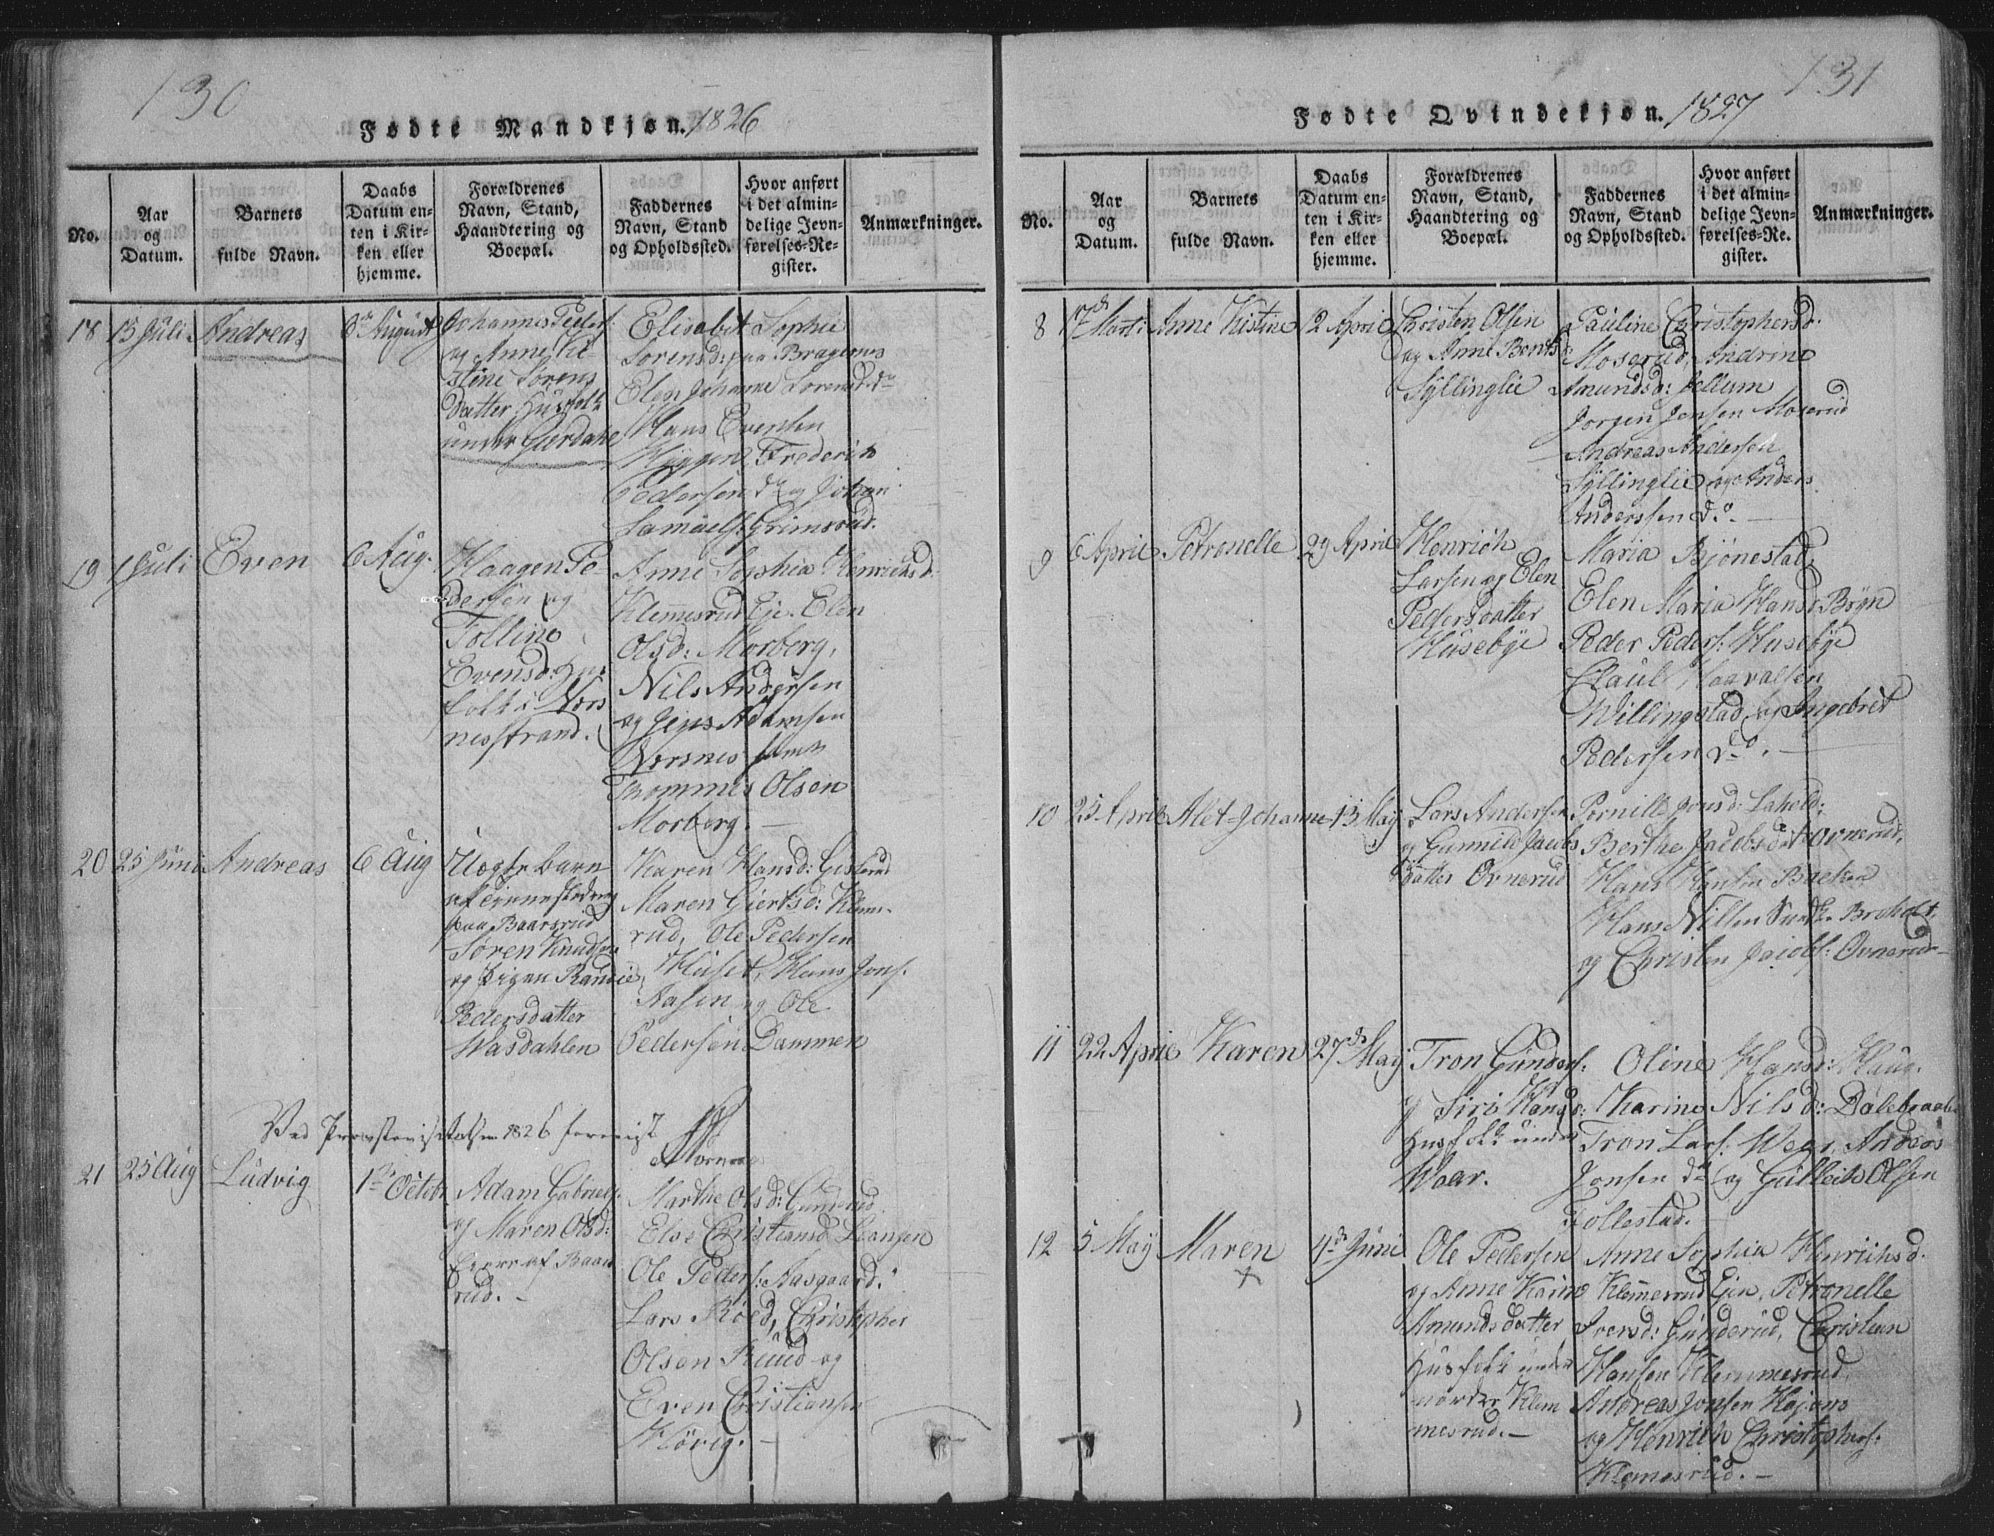 130
Fødte Mandkjøn. 1826
No.
Aar
og
Datum.
Barnets
fulde Navn.
Daabs
Datum en-
ten i Kir-
ken eller
hjemme.
Forældrenes
Navn, Stand,
Haandtering og
Boepæl.
Faddernes
Navn, Stand
og Opholdssted.
Hvor anført
i det almin-
delige Jevn-
førelses-Re-
gister.
Anmærkninger.
18
15 Juli
Andreas
6te August
Johannes Peders:
og Anne Ki-
stine Sørens
datter Husfolk
under Gierdahl
Elisabet Sophie
Sørensd: paa Bragernes
Elen Johanne Sorensd do
Hans Evensen
Frederik
Pedersen do og Johan
Samuels: Grimsrud.
19
1 Juli
Even
6 Aug.
Haagen Pe-
dersen og
Tolline
Evensd: Hus
folk i Nors
nesstrand.
Anne Sophia Henrichsd:
Klemmesrud Eje. Elen
Olsd: Morberg,
Nils Andersen
og Jens Adamsen
Norsnes samt
Thommes Olsen
Morberg. —
20
25 Juni
Andreas
6 Aug
Uægte Barn
af tienestedreng
paa Baarsrud
Søren Knudsen
og Pigen Randie
Pedersdatter
Wasdahlen
Karen Hansd: Gisterud
Maren Giertsd: Klem-
rud, Ole Pedersen
Huset, Hans Jons:
Aasen og Ole
Pedersen Dammen
Ved Provstevisitatsen 1826 foreviist
21
25 Aug
Ludvig
1te Octobr
Adam Gabriels:
og Maren Olsd:
Eiere af Baar
rud. -
Marthe Olsd: Gunerud
Else Christiansd Stensen
Ole Peders: Aasgaard.
Lars Røed, Christopher
Olsen Ruud og
Even Christiansen
Høvig. —
131
Fødte Qvindekjøn. 1827
No.
Aar
og
Datum.
Barnets
fulde Navn.
Daabs
Datum en-
ten i Kir-
ken eller
hjemme.
Forældrenes
Navn, Stand,
Haandtering og
Boepæl.
Faddernes
Navn, Stand
og Opholdssted.
Hvor anført
i det almin-
delige Jevn-
førelses-Re-
gister.
Anmærkninger.
8
17de Mart:
Anne Kistine
12 April
Christen Olsen
og Anne Bentsd:
Syllinglie
Pauline Christophersd.
Moserud, Andrine
Amundsd: Jellum
Jorgen Jensen Moserud
Andreas Andersen
Syllinglie og Anders
Anderssen do. —
9
6 April
Petronelle
29 April
Henrich
Larsen og Elen
Pedersdatter
Husebye
Maria Bjønestad,
Elen Maria Hansd Bøyn
Peder Peders: Husebye
Claul Haavalsen
Willingstad og Ingebret
Pedersen do. —
10
25 April
Alet Johanne
13 May
Lars Andersen
og Gunnild Jacobs
datter Ovnerud
Pernille Jensd: Lahold:
Berthe Jacobsdat Ovnerud,
Hans Hansen Backen
Hans Nilsen Broholt,
og Christen Jacobs: Ovnerud —
11
22 April
Karen
27de May
Tron Gunders:
og Siri Hansd:
Husfolk under
Waar.
Oline Hansd: Haug.
Karine Nilsd: Dalebraate
Tron Lars: Weer, Andreas
Jonsen do og Gulleik Olsen
Tollestad. —
12
5 May
Maren
4de Juni
Ole Pedersen
og Anne Karine
Amundsdatter
Husfolk under
nordre Klem
mesrud. —
Anne Sophia Henrichsd.
Klemmerud Eje, Petronelle
Iversd: Gunderud, Christian
Hansen Klemmesrud,
Andreas Jonsen Højens
og Henrich Christophers:
Klemesrud. —